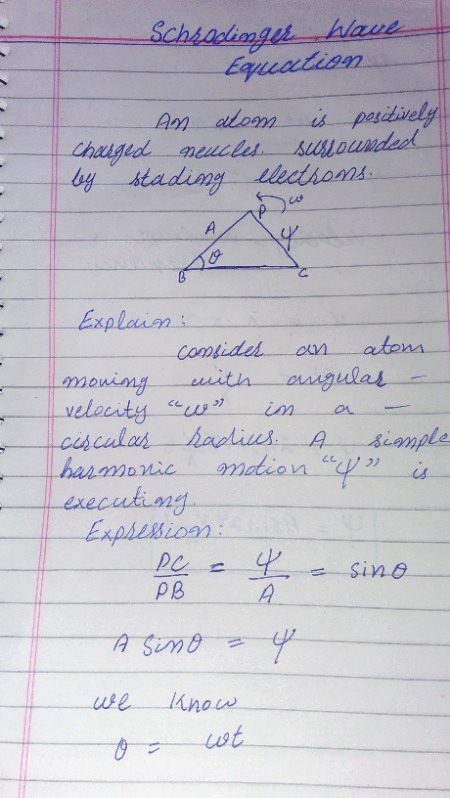 Schrodinger Wave
Equation
An atom is positively
charged neucles. surrouded
by stading electrons.
ω
P
A
ψ
θ
B
C
Explain:
consider an atom
moving with angular –
velocity "ω" in a –
circular radius. A simple
harmonic motion "ψ" is
executing.
Expression:
PC/PB = ψ/A = sinθ
A sinθ = ψ
we know
θ = ωt